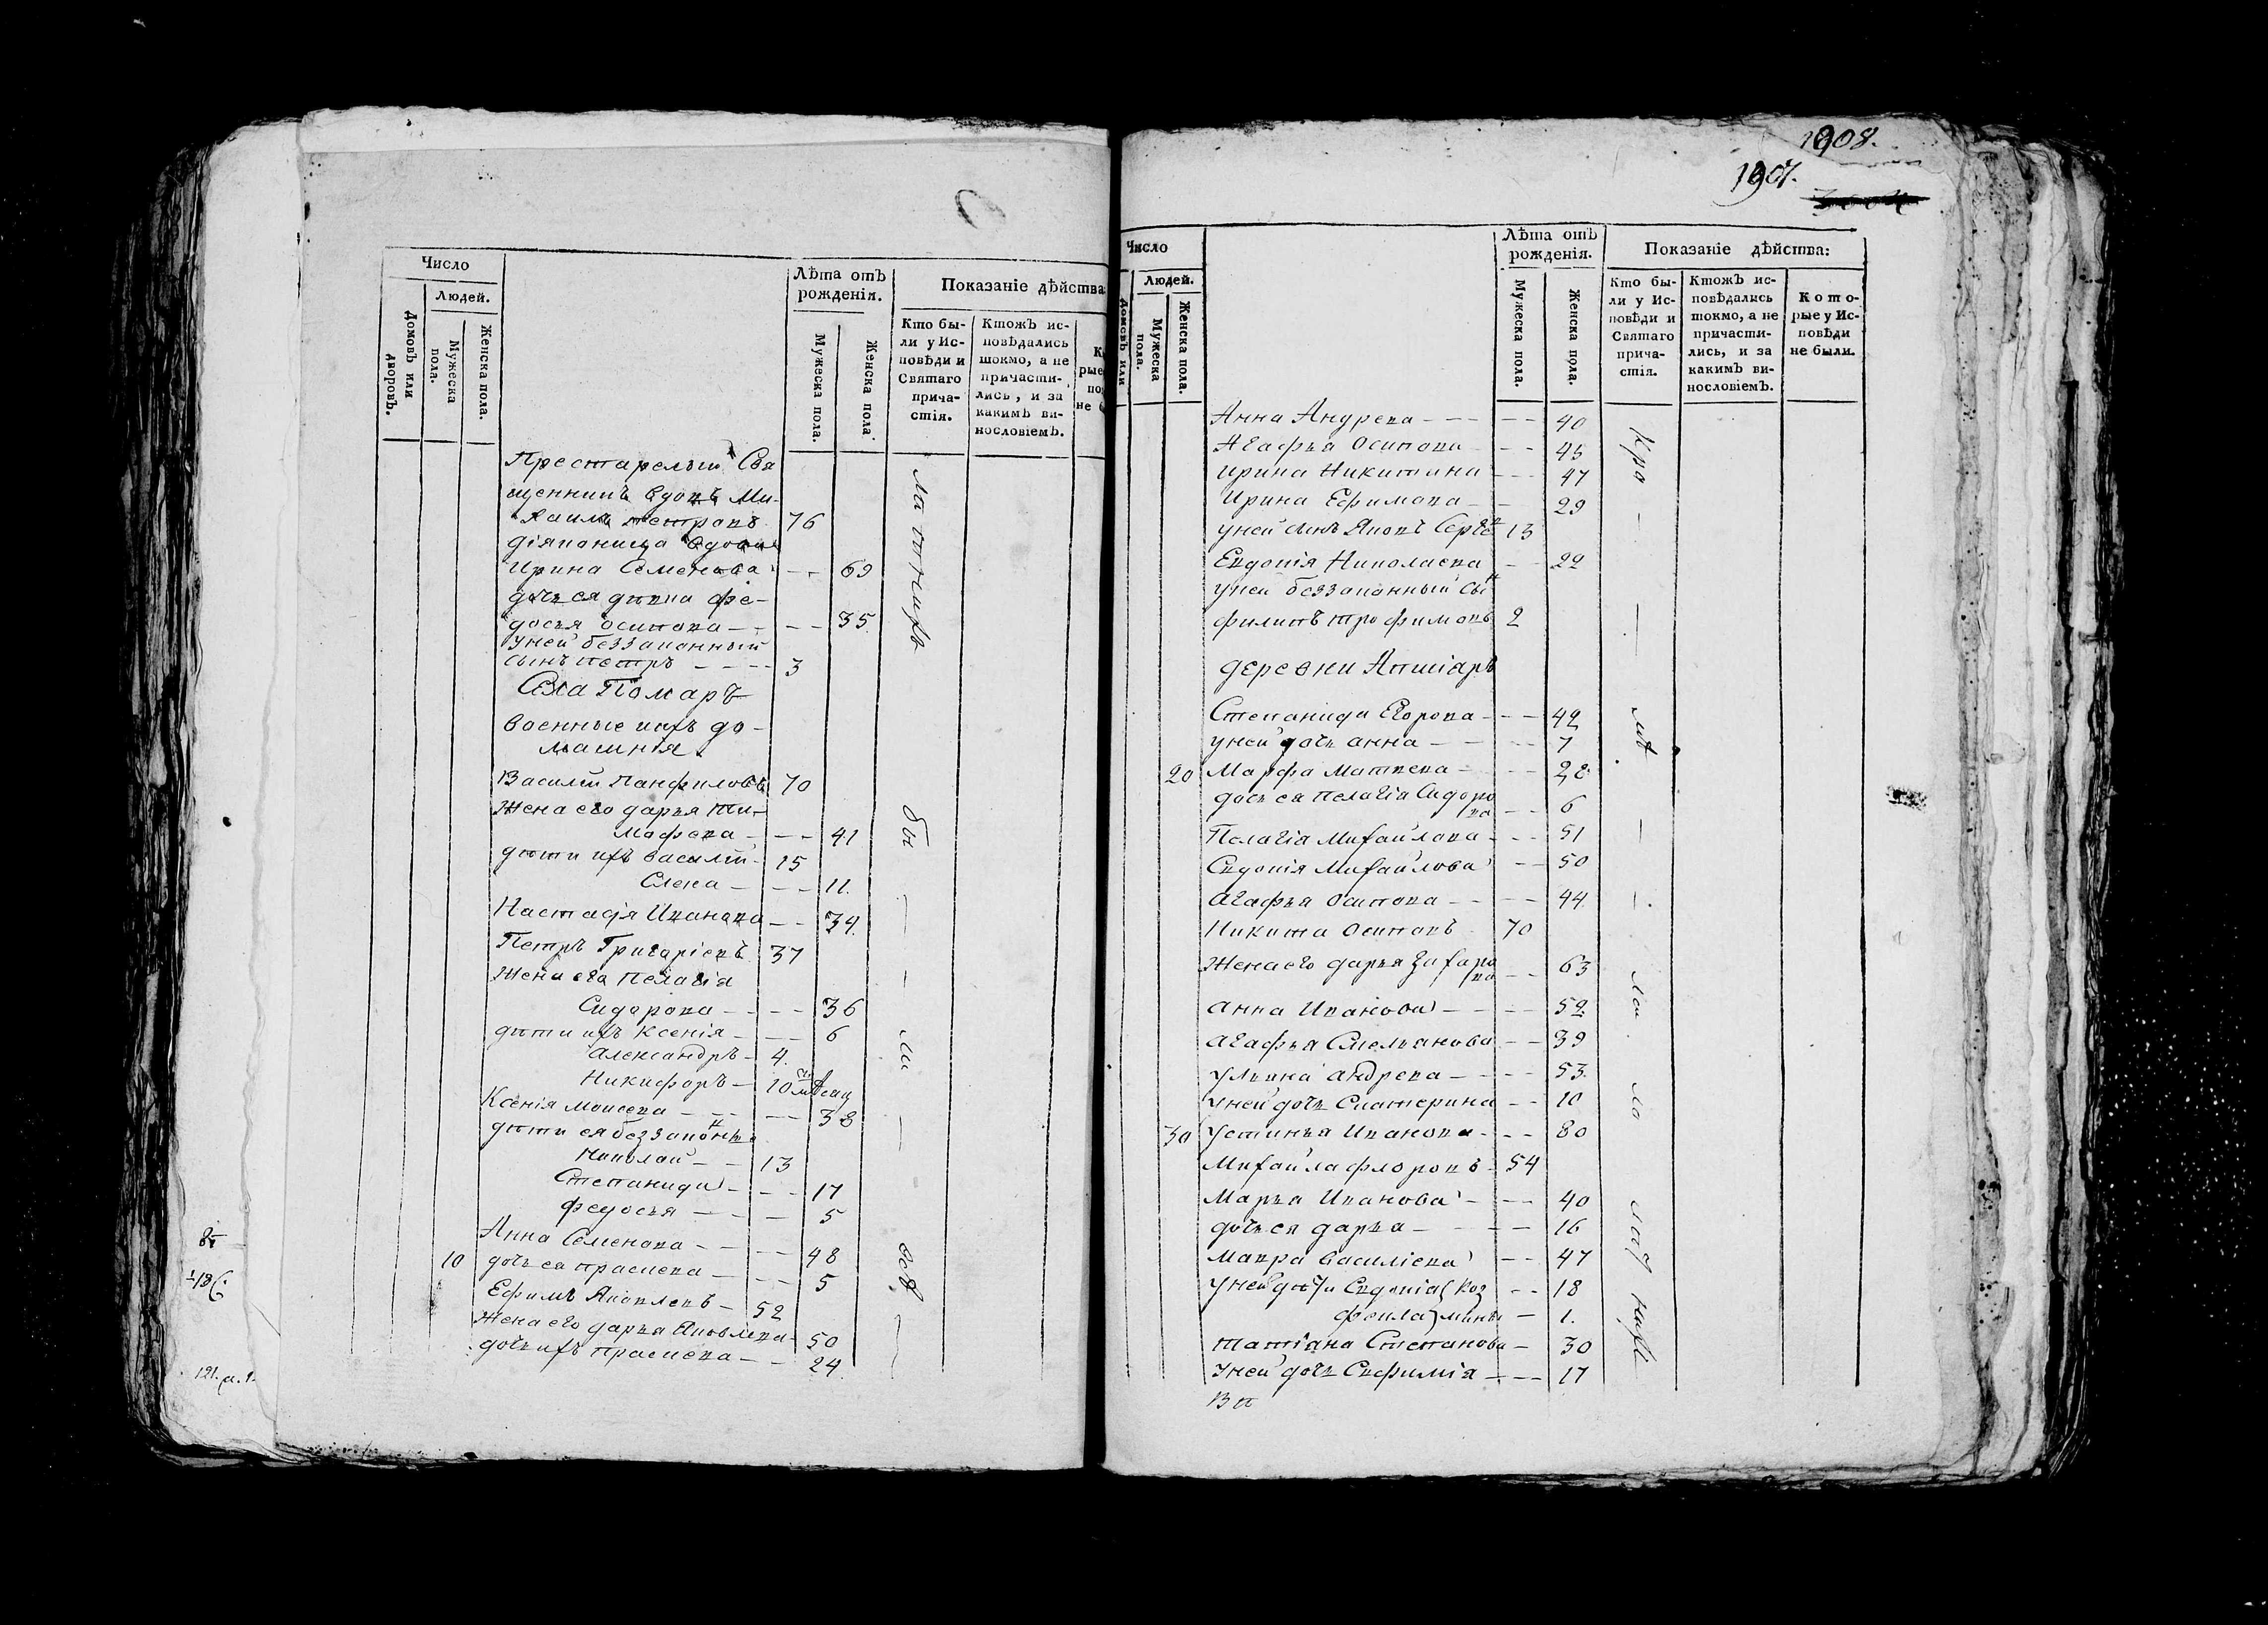 Число
Людей.
Домовъ или дворовъ.
Мужеска пола.
Женска пола.
Лѣта отъ рожденія.
Мужеска пола.
Женска пола.
Показаніе дѣйства:
Кто бы-
ли у Ис-
повѣди и
Святаго
прича-
стія.
Ктожъ ис-
повѣдались
токмо, а не
причасти-
лись, и за
какимъ ви-
нословіемъ.
Престарелый Свя
щенникъ вдовъ Ми-
хаилъ петровъ 76
діяконица вдова
Ирина Семенова - - 69
дочь ея дѣвка фе-
досья осипова - - - - 35
у ней беззаконный
сынъ петръ - - - - 3
Села Помаръ
военные ихъ до-
машнія
Василій Панфиловъ 70
Жена его дарья Ти-
мофеева - - - 41
дѣти ихъ василій - 15
Елена - - - 11.
Настасія Иванова - - 34.
Петръ Григоріевъ 37
Жена его Пелагія
Сидорова - - - - 36
дѣти ихъ Ксенія - - - 6
Александръ - 4.
Никифоръ - 10 месяц
Ксенія Моисеева - - - - 38
дѣти ея беззаконны
Николай - - 13
Степанида - - - 17
Федосья - - - 5
Анна Семенова - - - - 48
10 дочь ея прасковва - - - 5
Ефимъ Яковлевъ - 52
Жена его дарья Яковлева - 50
дочь ихъ прасковва - - 24.
121.
1908.
1907.
Число
Людей.
Домовъ или
Мужеска пола.
Женска пола.
Лѣта отъ
рожденія.
Мужеска пола.
Женска пола.
Показаніе дѣйства:
Кто бы-
ли у Ис-
повѣди и
Святаго
прича-
стія.
Ктожъ ис-
повѣдались
токмо, а не
причасти-
лись, и за
какимъ ви-
нословіемъ.
Кото-
рые у Ис-
повѣди
не были.
Анна Андреева - - - - - 40
Агафья Осипова - - 45
Ирина Никитина - - - 47
Ирина Ефимова - - 29
у ней сынъ Яковъ Серге 13
Евдокія Николаева - - 22
у ней беззаконный сын
филипъ трофимовъ 2
деревни Апшіаръ
Степанида Егорова - - - 42
у ней дочь анна - - - - 7
20 Марфа Матвеева - - - 28
дочь ея пелагіа Сидоро
ва - - 6
Пелагіа Михайлова - - - 51
Евдокія Михайлова - - 50
агафья Осипова - - - - 44.
Никита Осиповъ 70
Жена его дарья Захаро
ва - - 63
анна Иванова - - - - 52
агафья Емельянова - - 39
Ульяна андреева - - - - 53.
у ней дочь Екатерина - - 10
30 Устинья Иванова - - - 80
Михайла флоровъ - 54
Марья Иванова - - - 40
дочь ея дарья - - - - 16
Мавра Василіева - - 47
у ней дочи Евдокіа - - 18
фекла - 1.
татіана Степанова - 30
у ней дочь Евфимія - - - 17